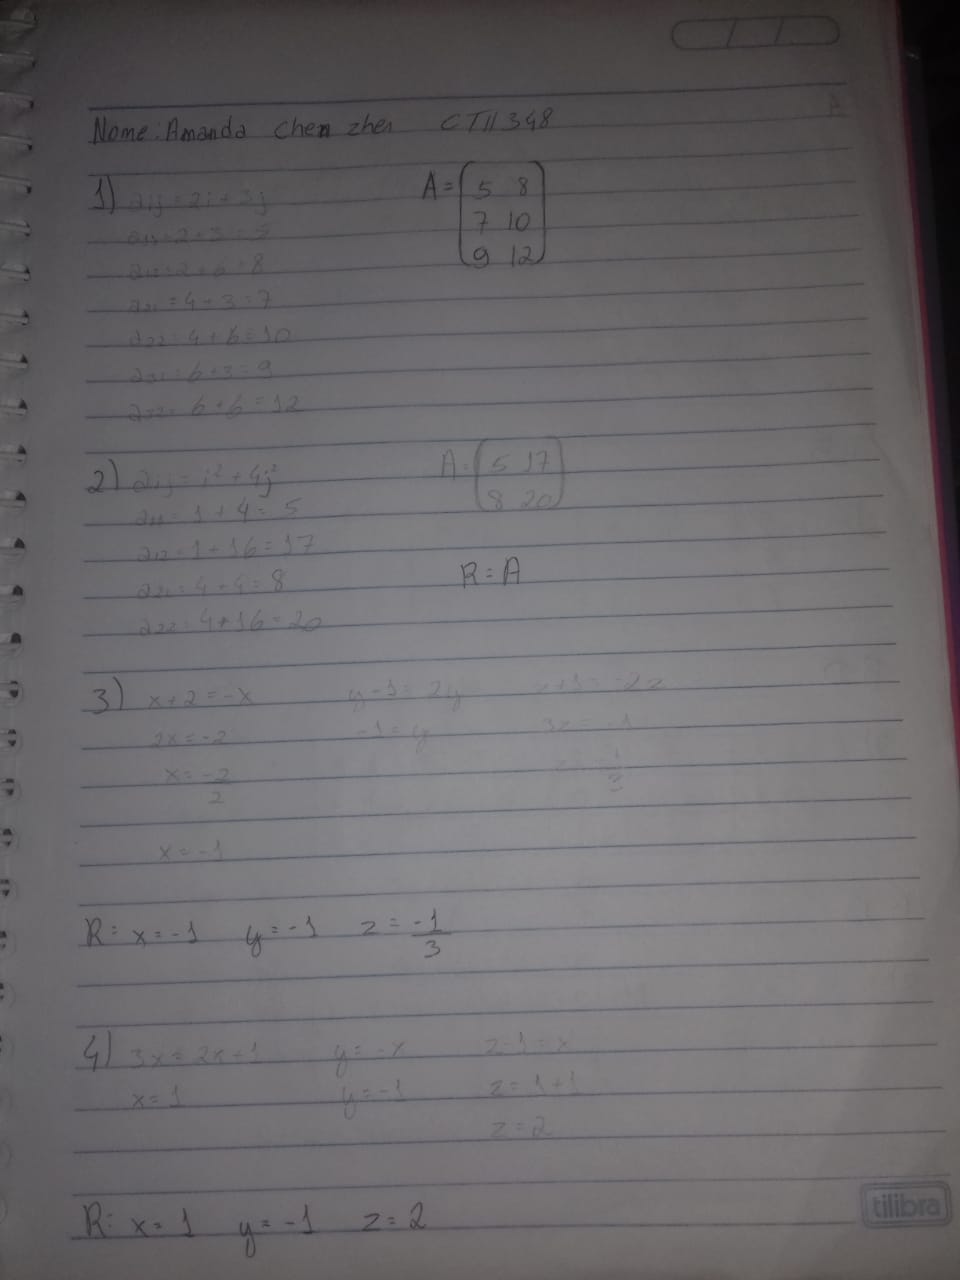 Nome: Amanda Chen zhen CTII 348
1) aij = 2i + 3j
a11 = 2 + 3 = 5
a12 = 2 + 6 = 8
a21 = 4 + 3 = 7
a22 = 4 + 6 = 10
a31 = 6 + 3 = 9
a32 = 6 + 6 = 12
A = ( 5 8
7 10
9 12 )
2) aij = i² + 4j²
a11 = 1 + 4 = 5
a12 = 1 + 16 = 17
a21 = 4 + 4 = 8
a22 = 4 + 16 = 20
A = ( 5 17
8 20 )
R = A
3) x + 2 = -x y - 1 = 2y z + 1 = -2z
2x = -2 -1 = y 3z = -1
x = -2/2 z = -1/3
x = -1
R: x = -1 y = -1 z = -1/3
4) 3x = 2x + 1 y = -x z - 1 = x
x = 1 y = -1 z = 1 + 1
z = 2
R: x = 1 y = -1 z = 2
tilibra